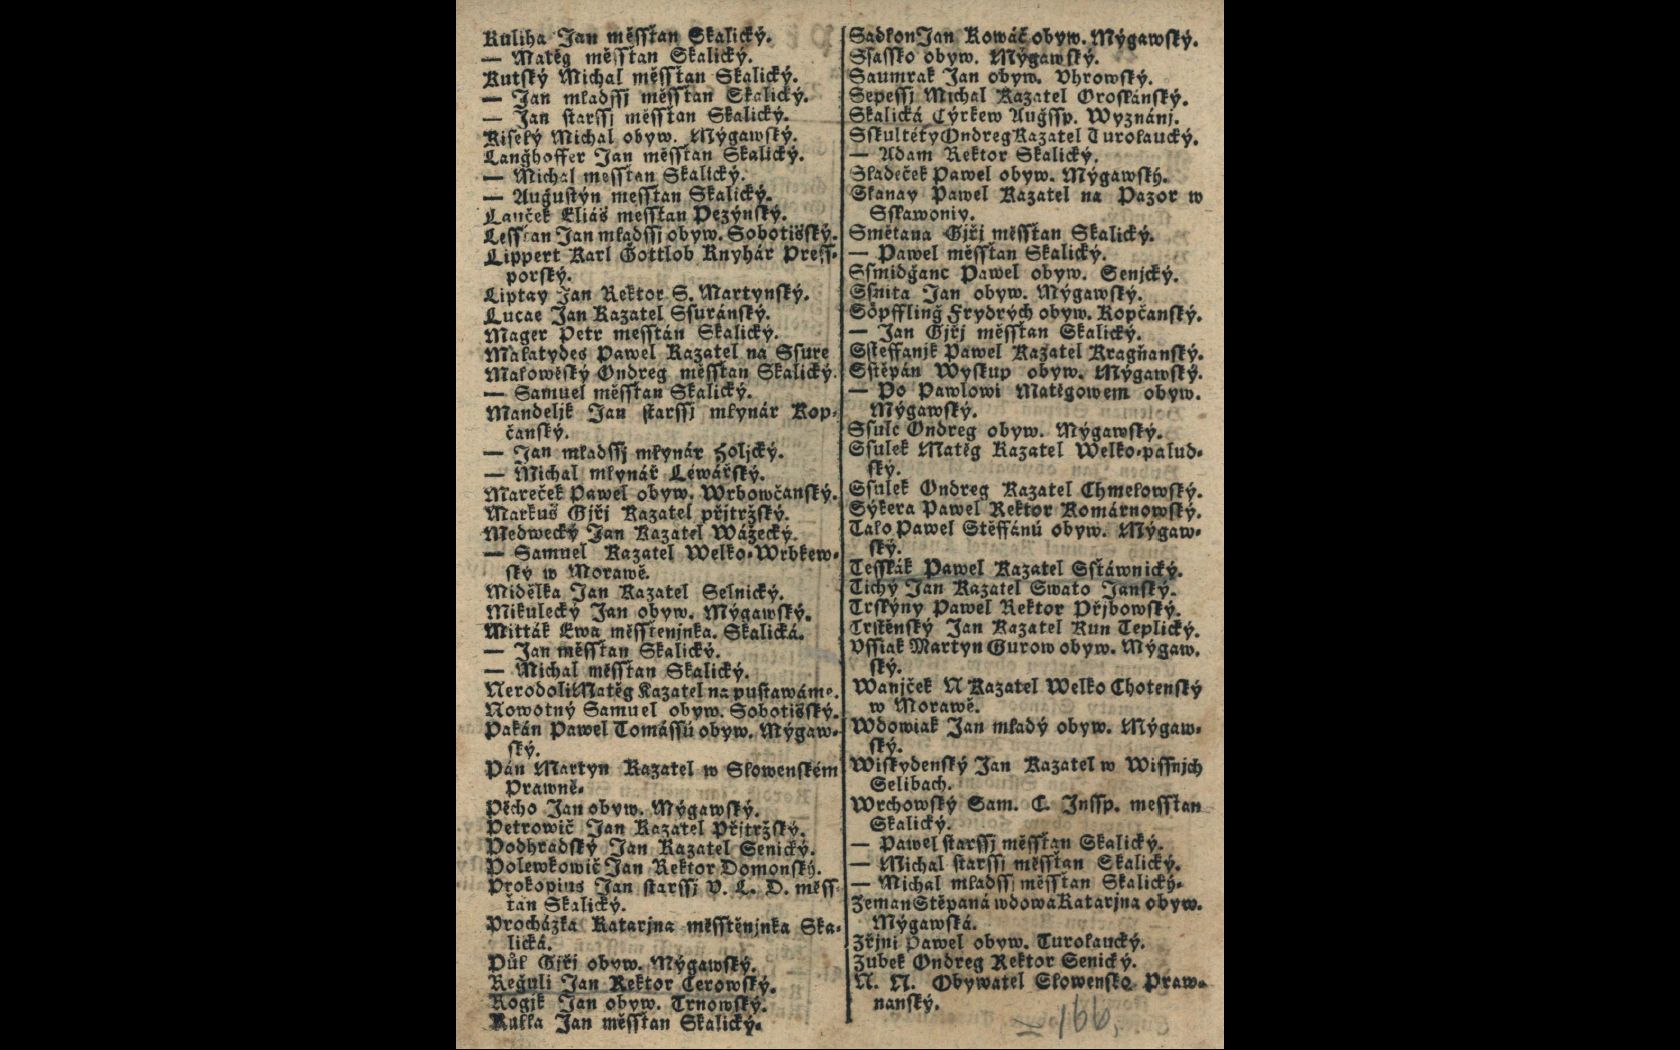 Kuliha Jan měssťan Skalický.
— Matěg měssťan Skalický.
Kutský Michal měssťan Skalický.
— Jan mladssj měssťan Skalický.
— Jan starssj měssťan Skalický.
Kiselý Michal obyw. Mýgawský.
Langhoffer Jan měssťan Skalický.
— Michal messťan Skalický.
— Augustýn messťan Skalický.
Lauček Eliáš messťan Pezýnský.
Lessťan Jan mladssj obyw. Sobotišský.
Lippert Karl Gottlob Knyhár Press-
porský.
Liptay Jan Rektor S. Martynský.
Lucae Jan Kazatel Ssuránský.
Mager Petr messtán Skalický.
Malatydes Pawel Kazatel na Ssure
Malowěský Ondreg měssťan Skalický.
— Samuel měssťan Skalický.
Mandeljk Jan starssj mlynár Kop-
čanský.
— Jan mladssj mlynár Holjcký.
— Michal mlynář Léwářský.
Mareček Pawel obyw. Wrbowčanský.
Markuš Gjřj Kazatel přjtržský.
Medwecký Jan Kazatel Wážecký.
— Samuel Kazatel Welko-Wrbkew-
ský w Morawě.
Midělka Jan Kazatel Selnický.
Mikulecký Jan obyw. Mýgawský.
Mitták Ewa měssťenjnka. Skalická.
— Jan měssťan Skalický.
— Michal měssťan Skalický.
Nerodoli Matěg Kazatel na pustawáme.
Nowotný Samuel obyw. Sobotišský.
Pakán Pawel Tomássú obyw. Mýgaw-
ský.
Pán Martyn Kazatel w Slowenském
Prawně.
Pěcho Jan obyw. Mýgawský.
Petrowič Jan Kazatel Přjtržský.
Podhradský Jan Kazatel Senický.
Polewkowič Jan Rektor Domonský.
Prokopius Jan starssj V. L. D. měss-
ťan Skalický.
Procházka Katarjna měsstěnjnka Ska-
lická.
Půl Gjřj obyw. Mýgawský.
Reguli Jan Rektor Cerowský.
Rogjk Jan obyw. Trnowský.
Rulla Jan měssťan Skalický.
Sadlon Jan Kowáč obyw. Mýgawský.
Ssassko obyw. Mýgawský.
Saumrak Jan obyw. Uhrowský.
Sepessj Michal Kazatel Oroslánský.
Skalická Cýrkew Augssp. Wyznánj.
Sskultéty Ondreg Kazatel Turolaucký.
— Adam Rektor Skalický.
Sladeček Pawel obyw. Mýgawský.
Slanay Pawel Kazatel na Pazor w
Sslawoniy.
Smětana Gjřj měssťan Skalický.
— Pawel měssťan Skalický.
Ssmidganc Pawel obyw. Senjcký.
Ssnita Jan obyw. Mýgawský.
Söpffling Frydrých obyw. Kopčanský.
— Jan Gjřj měssťan Skalický.
Ssteffanjk Pawel Kazatel Kragňanský.
Sstěpán Wyskup obyw. Mýgawský.
— Po Pawlowi Matěgowem obyw.
Mýgawský.
Ssulc Ondreg obyw. Mýgawský.
Ssulek Matěg Kazatel Welko-palud-
ský.
Ssulek Ondreg Kazatel Chmelowský.
Sýkera Pawel Rektor Komárnowský.
Talo Pawel Stěffánú obyw. Mýgaw-
ský.
Tesskák Pawel Kazatel Sstáwnický.
Tichý Jan Kazatel Swato Janský.
Trskýny Pawel Rektor Přjbowský.
Trsténský Jan Kazatel Kun Teplický.
Ussiak Martyn Gurow obyw. Mýgaw.
ský.
Wanjček N Kazatel Welko Chotenský
w Morawě.
Wdowiak Jan mladý obyw. Mýgaw-
ský.
Wiskydenský Jan Kazatel w Wissnjch
Selibach.
Wrchowský Sam. C. Inssp. messťan
Skalický.
— Pawel starssj měssťan Skalický.
— Michal starssj měssťan Skalický.
— Michal mladssj měssťan Skalický.
Zeman Stěpaná wdowa Katarjna obyw.
Mýgawská.
Zřjni Pawel obyw. Turolaucký.
Zubek Ondreg Rektor Senický.
N. N. Obywatel Slowensko Praw-
nanský.
= 166.